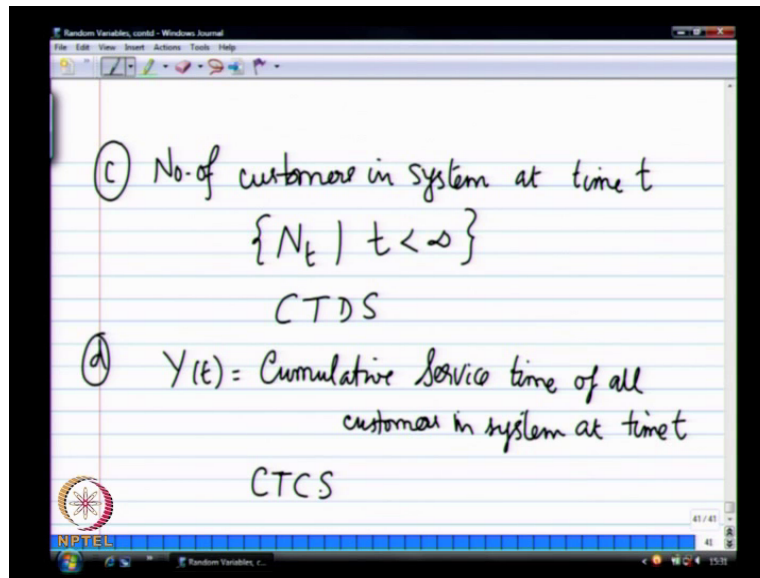 Random Variables, contd - Windows Journal
File Edit View Insert Actions Tools Help
(c) No. of customers in system at time t
{N_t | t < ∞}
CTDS
(d) Y(t) = Cumulative Service time of all
customers in system at time t
CTCS
41 / 41
41
NPTEL
Random Variables, c...
15:31